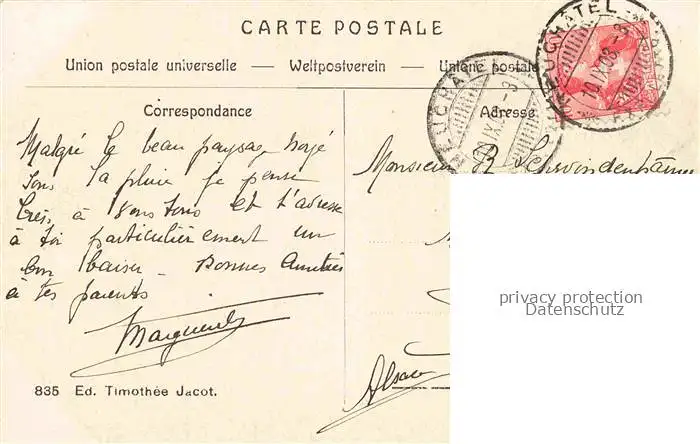 CARTE POSTALE
Union postale universelle — Weltpostverein — Unione postale
NEUCHÂTEL
10.IX.08
NEUCHÂTEL
Correspondance
Adresse
Malgré le beau paysage noyé
sous la pluie je pense
très à vous tous et t'adresse
à toi particulièrement un
bon baiser. Bonnes Amitiés
à tes parents
Marguerite
Monsieur
Alsace
privacy protection
Datenschutz
835 Ed. Timothée Jacot.